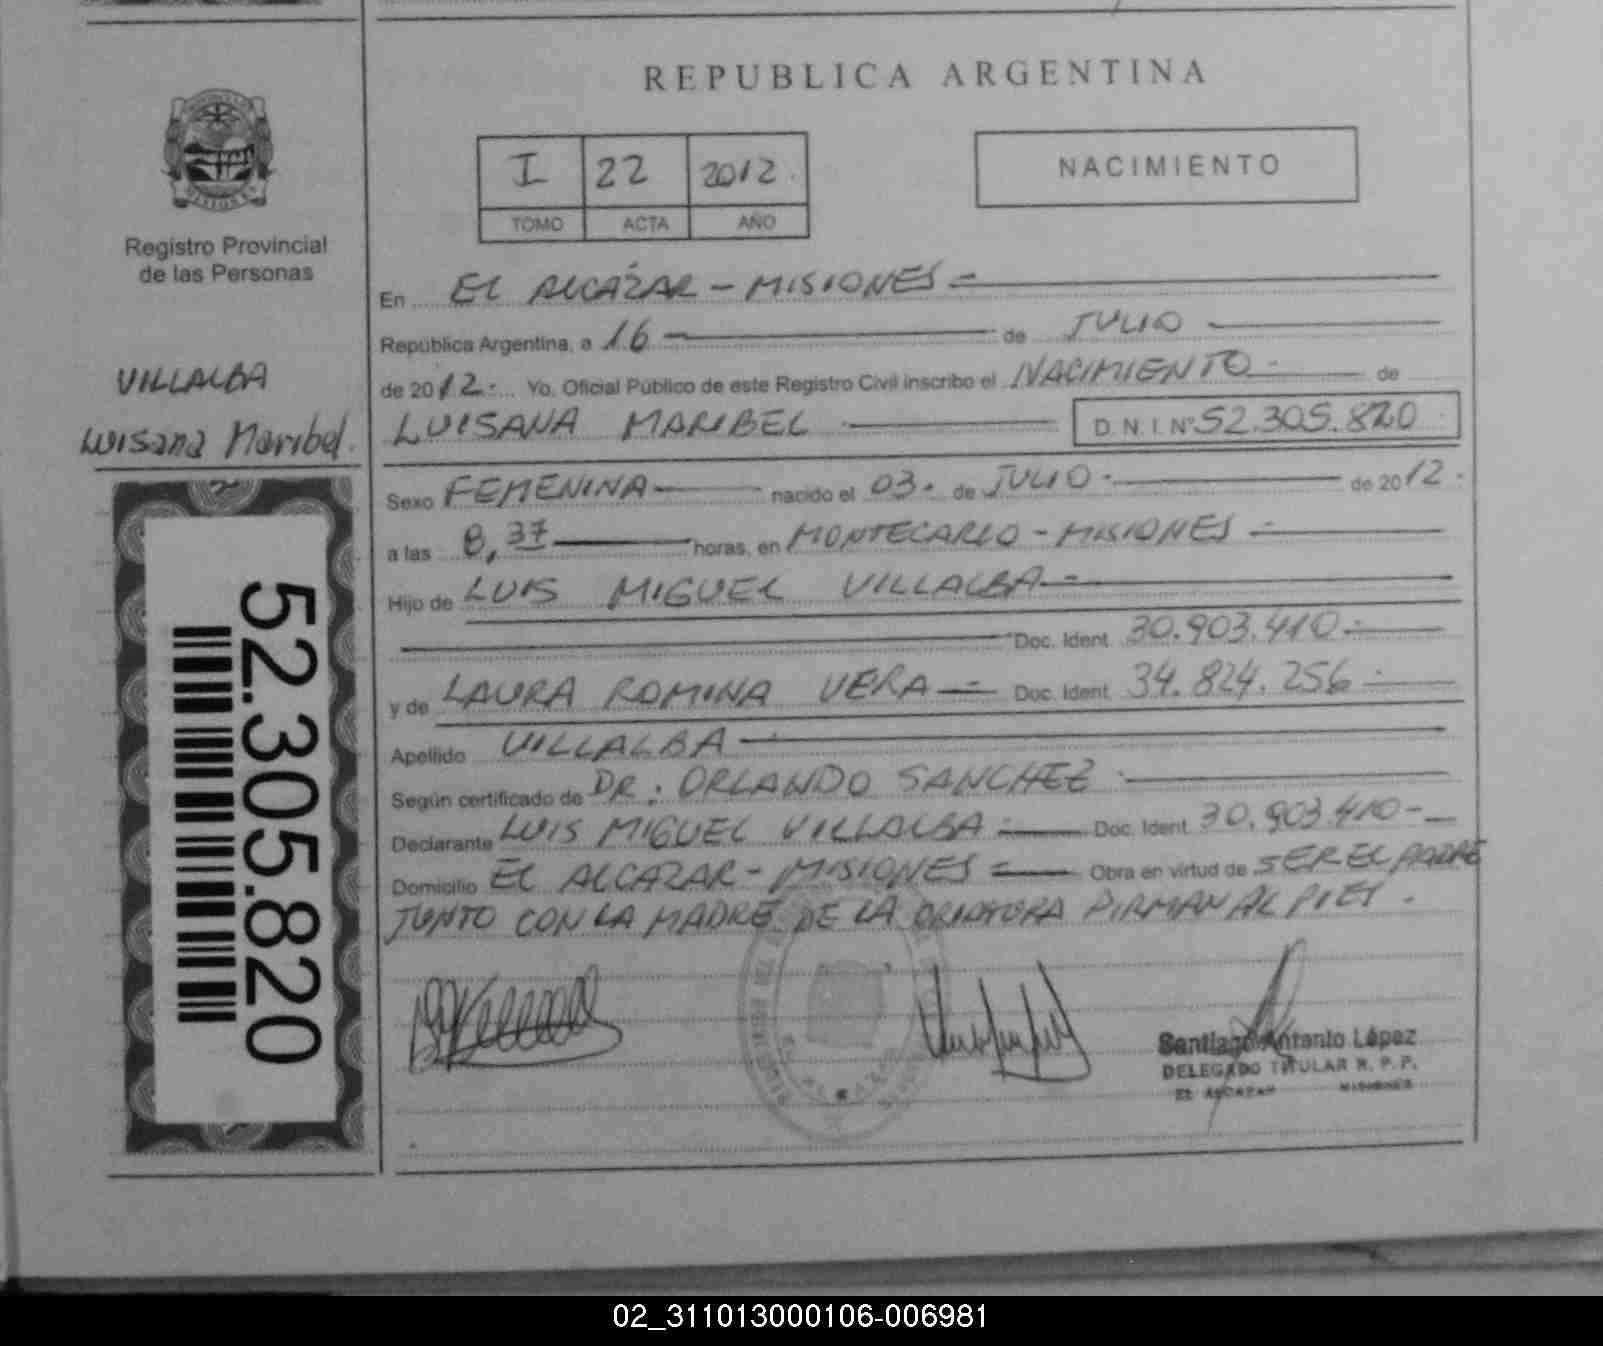 REPUBLICA ARGENTINA
I 22 2012.
TOMO ACTA AÑO
NACIMIENTO
Registro Provincial
de las Personas
VILLALBA
Luisana Maribel.
52.305.820
En EL ALCAZAR - MISIONES -
República Argentina, a 16 de JULIO
de 2012.- Yo, Oficial Público de este Registro Civil inscribo el NACIMIENTO - de
LUISANA MARIBEL D.N.I. Nº 52.305.820
Sexo FEMENINA nacido el 03. de JULIO - de 2012.
a las 8,37 horas, en MONTECARLO - MISIONES -
Hijo de LUIS MIGUEL VILLALBA -
Doc. Ident. 30.903.410.-
y de LAURA ROMINA VERA - Doc. Ident. 34.824.256 -
Apellido VILLALBA
Según certificado de DR. ORLANDO SANCHEZ -
Declarante LUIS MIGUEL VILLALBA - Doc. Ident. 30.903.410-
Domicilio EL ALCAZAR - MISIONES - Obra en virtud de SER EL PADRE
JUNTO CON LA MADRE DE LA CRIATURA FIRMAN AL PIE.
Santiago Antonio López
DELEGADO TITULAR R. P. P.
EL ALCAZAR MISIONES
02_311013000106-006981